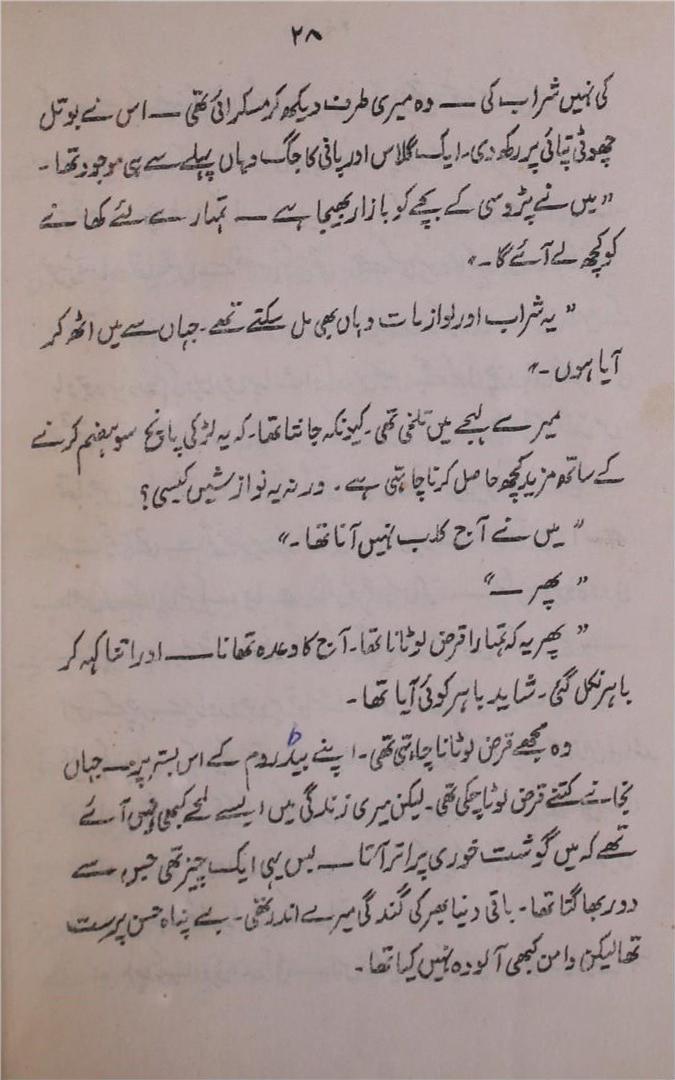 ۲۸
کی نہیں شراب کی ـــ وہ میری طرف دیکھ کر مسکرائی تھی ـــ اس نے بوتل
چھوٹی تپائی پر رکھ دی۔ ایک گلاس اور پانی کا جگ وہاں پہلے سے ہی موجود تھا۔
” میں نے پڑوسی کے بچے کو بازار بھیجا ہے ـــ تمہارے لئے کھانے
کو کچھ لے آئے گا۔“
” یہ شراب اور لوازمات وہاں بھی مل سکتے تھے۔ جہاں سے میں اٹھ کر
آیا ہوں۔“
میرے لہجے میں تلخی تھی۔ کیونکہ جانتا تھا۔ کہ یہ لڑکی پانچ سو ہضم کرنے
کے ساتھ مزید کچھ حاصل کرنا چاہتی ہے۔ ورنہ یہ نوازشیں کیسی؟
” میں نے آج کلب نہیں آنا تھا۔“
” پھر ـــ“
” پھر یہ کہ تمہارا قرض لوٹانا تھا۔ آج کا وعدہ تھا نا ـــ اور اتنا کہہ کر
باہر نکل گئی۔ شاید باہر کوئی آیا تھا۔
وہ مجھے قرض لوٹانا چاہتی تھی۔ اپنے بیڈ روم کے اس بستر پر ـــ جہاں
نجانے کتنے قرض لوٹا چکی تھی۔ لیکن میری زندگی میں ایسے لمحے کبھی نہیں آئے
تھے کہ میں گوشت خوری پر اتر آتا ـــ بس یہی ایک چیز تھی جس سے
دور بھاگتا تھا۔ باقی دنیا بھر کی گندگی میرے اندر تھی۔ بے پناہ حسن پرست
تھا لیکن دامن کبھی آلودہ نہیں کیا تھا۔